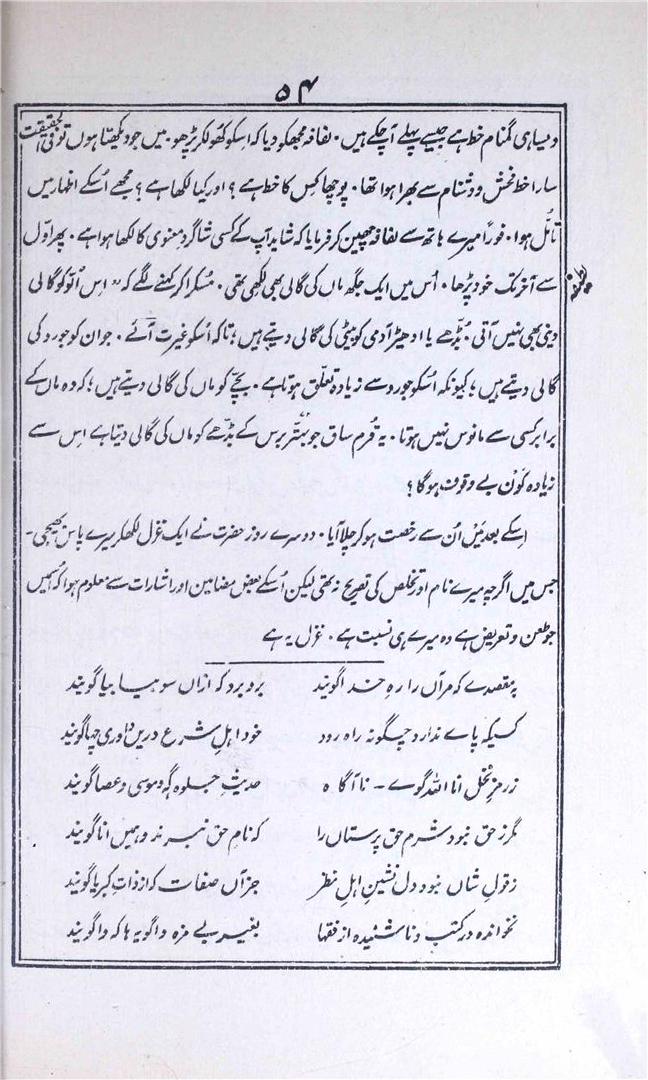 ۵۴
ویسا ہی گمنام خط ہے جیسے پہلے آچکے ہیں۔ لفافہ مجھکو دیا کہ اسکو کھولکر پڑھو۔ میں جو دیکھتا ہوں تو فی الحقیقت
سارا خط فحش و دشنام سے بھرا ہوا تھا۔ پوچھا کس کا خط ہے؟ اور کیا لکھا ہے؟ مجھے اُسکے اظہار میں
تأمل ہوا۔ فوراً میرے ہاتھ سے لفافہ چھین کر فرمایا کہ شاید آپ کے کسی شاگرد معنوی کا لکھا ہوا ہے۔ پھر اوّل
سے آخر تک خود پڑھا۔ اُس میں ایک جگہ ماں کی گالی بھی لکھی تھی۔ مسکرا کر کہنے لگے کہ "اس اُلّو کو گالی
لطیفہ
دینی بھی نہیں آتی۔ بُڈّھے یا ادھیڑ آدمی کو بیٹی کی گالی دیتے ہیں؛ تاکہ اُسکو غیرت آئے۔ جوان کو جورو کی
گالی دیتے ہیں؛ کیونکہ اُسکو جورو سے زیادہ تعلّق ہوتا ہے۔ بچّے کو ماں کی گالی دیتے ہیں؛ کہ وہ ماں کے
برابر کسی سے مانوس نہیں ہوتا۔ یہ قُرم ساق جو بہتّر برس کے بڈّھے کو ماں کی گالی دیتا ہے اس سے
زیادہ کَونْ بے وقوف ہوگا؟
اسکے بعد مَیْں اُن سے رخصت ہو کر چلا آیا۔ دوسرے روز حضرت نے ایک غزل لکھکر میرے پاس بھیجی۔
جس میں اگرچہ میرے نام اور تخلص کی تصریح نہ تھی لیکن اُسکے بعض مضامین اور اشارات سے معلوم ہوا کہ اُسمیں
جو طعن و تعریض ہے وہ میرے ہی نسبت ہے۔ غزل یہ ہے
بہ مقصدے کہ مرآں را رہِ خدا گویند برو برو کہ ازاں سو بیا بیا گویند
کسیکہ پاے ندارد چگونہ راہ رود خود اہلِ شرع دریں داوری چہا گویند
ز رمزِ نخلِ انا اللہ گوے۔ ناآگاہ حدیثِ جلوہ گہ و موسی و عصا گویند
مگر ز حق نبود شرم حق پرستاں را کہ نامِ حق نبرند و ہمیں انا گویند
ز قولِ شاں نبود دل نشینِ اہلِ نظر جز آں صفات کہ از ذاتِ کبریا گویند
نخواندہ در کتب و ناشنیدہ از فقہا بغیر بے مزہ واگویہ ہا کہ وا گویند